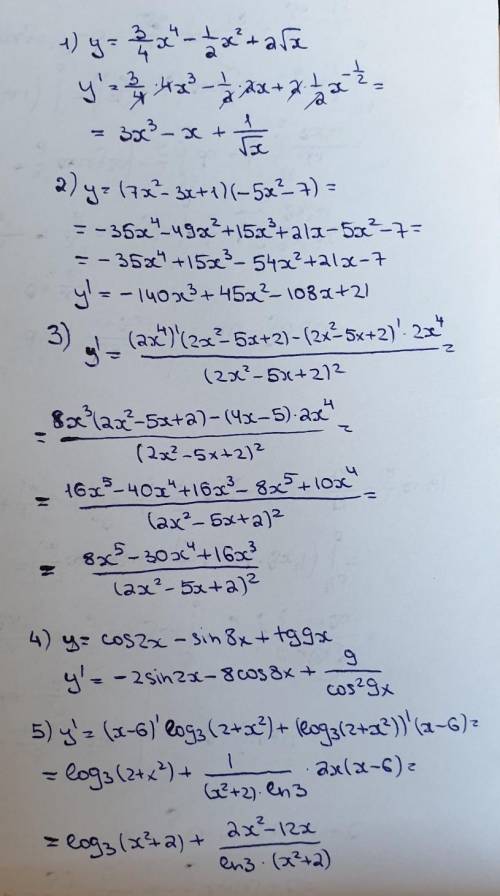 1) y = 3/4 x⁴ - 1/2 x² + 2√x
y' = 3/4 · 4x³ - 1/2 · 2x + 2 · 1/2 x^(-1/2) =
= 3x³ - x + 1/√x
2) y = (7x² - 3x + 1)(-5x² - 7) =
= -35x⁴ - 49x² + 15x³ + 21x - 5x² - 7 =
= -35x⁴ + 15x³ - 54x² + 21x - 7
y' = -140x³ + 45x² - 108x + 21
3) y' = ((2x⁴)'(2x² - 5x + 2) - (2x² - 5x + 2)' · 2x⁴)/(2x² - 5x + 2)² =
= (8x³(2x² - 5x + 2) - (4x - 5) · 2x⁴)/(2x² - 5x + 2)² =
= (16x⁵ - 40x⁴ + 16x³ - 8x⁵ + 10x⁴)/(2x² - 5x + 2)² =
= (8x⁵ - 30x⁴ + 16x³)/(2x² - 5x + 2)²
4) y = cos2x - sin8x + tg9x
y' = -2sin2x - 8cos8x + 9/cos²9x
5) y' = (x-6)' log₃(2+x²) + (log₃(2+x²))' (x-6) =
= log₃(2+x²) + 1/((x²+2) · ln3) · 2x(x-6) =
= log₃(x²+2) + (2x² - 12x)/(ln3 · (x²+2))